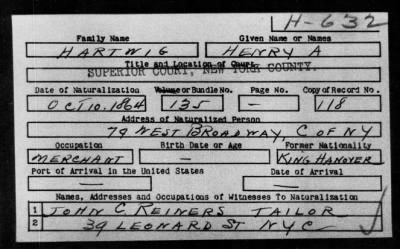 H-632
Family Name Given Name or Names
HARTWIG HENRY A
Title and Location of Court
SUPERIOR COURT, NEW YORK COUNTY.
Date of Naturalization Volume or Bundle No. Page No. Copy of Record No.
OCT 10. 1864 135 — 118
Address of Naturalized Person
79 WEST BROADWAY, C OF NY
Occupation Birth Date or Age Former Nationality
MERCHANT — KING HANOVER
Port of Arrival in the United States Date of Arrival
— —
Names, Addresses and Occupations of Witnesses To Naturalization
1 JOHN C REINERS TAILOR
2 39 LEONARD ST NYC